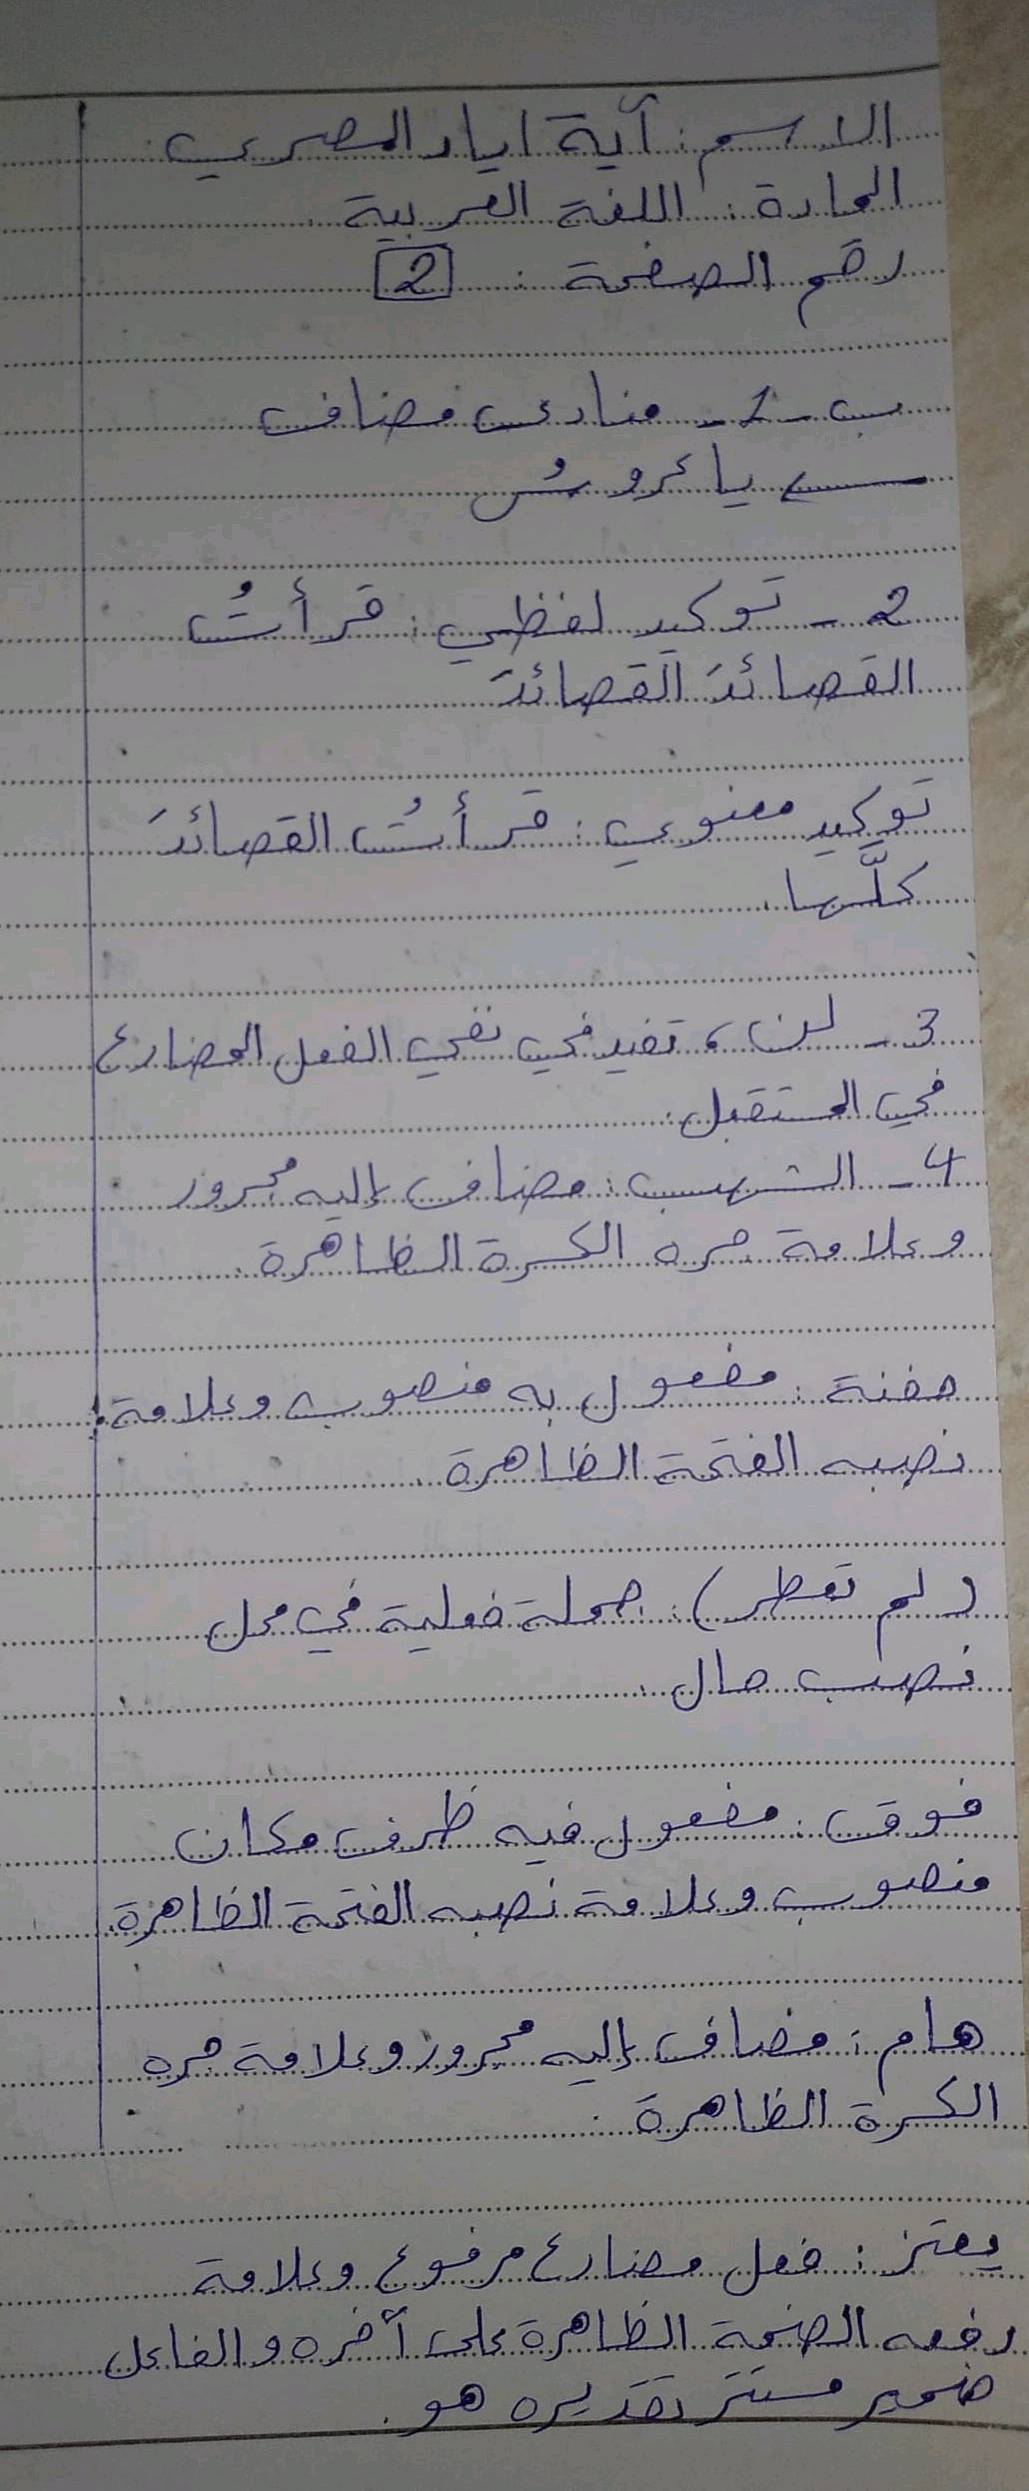 الاسم: آية اياد المصري
المادة: اللغة العربية
رقم الصفحة: 2
ب - 1 - منادى مضاف
← يا عروسُ
2 - توكيد لفظي: قرأتُ
القصائدَ القصائدَ
توكيد معنوي: قرأتُ القصائدَ
كلَّها.
3 - لن، تفيد في نفي الفعل المضارع
في المستقبل.
4 - الشهب: مضاف إليه مجرور
وعلامة جره الكسرة الظاهرة.
حفنة: مفعول به منصوب وعلامة
نصبه الفتحة الظاهرة.
(لم تمطر): جملة فعلية في محل
نصب حال.
فوق: مفعول فيه ظرف مكان
منصوب وعلامة نصبه الفتحة الظاهرة.
هام: مضاف إليه مجرور وعلامة جره
الكسرة الظاهرة.
يعتز: فعل مضارع مرفوع وعلامة
رفعه الضمة الظاهرة على آخره والفاعل
ضمير مستتر تقديره هو.